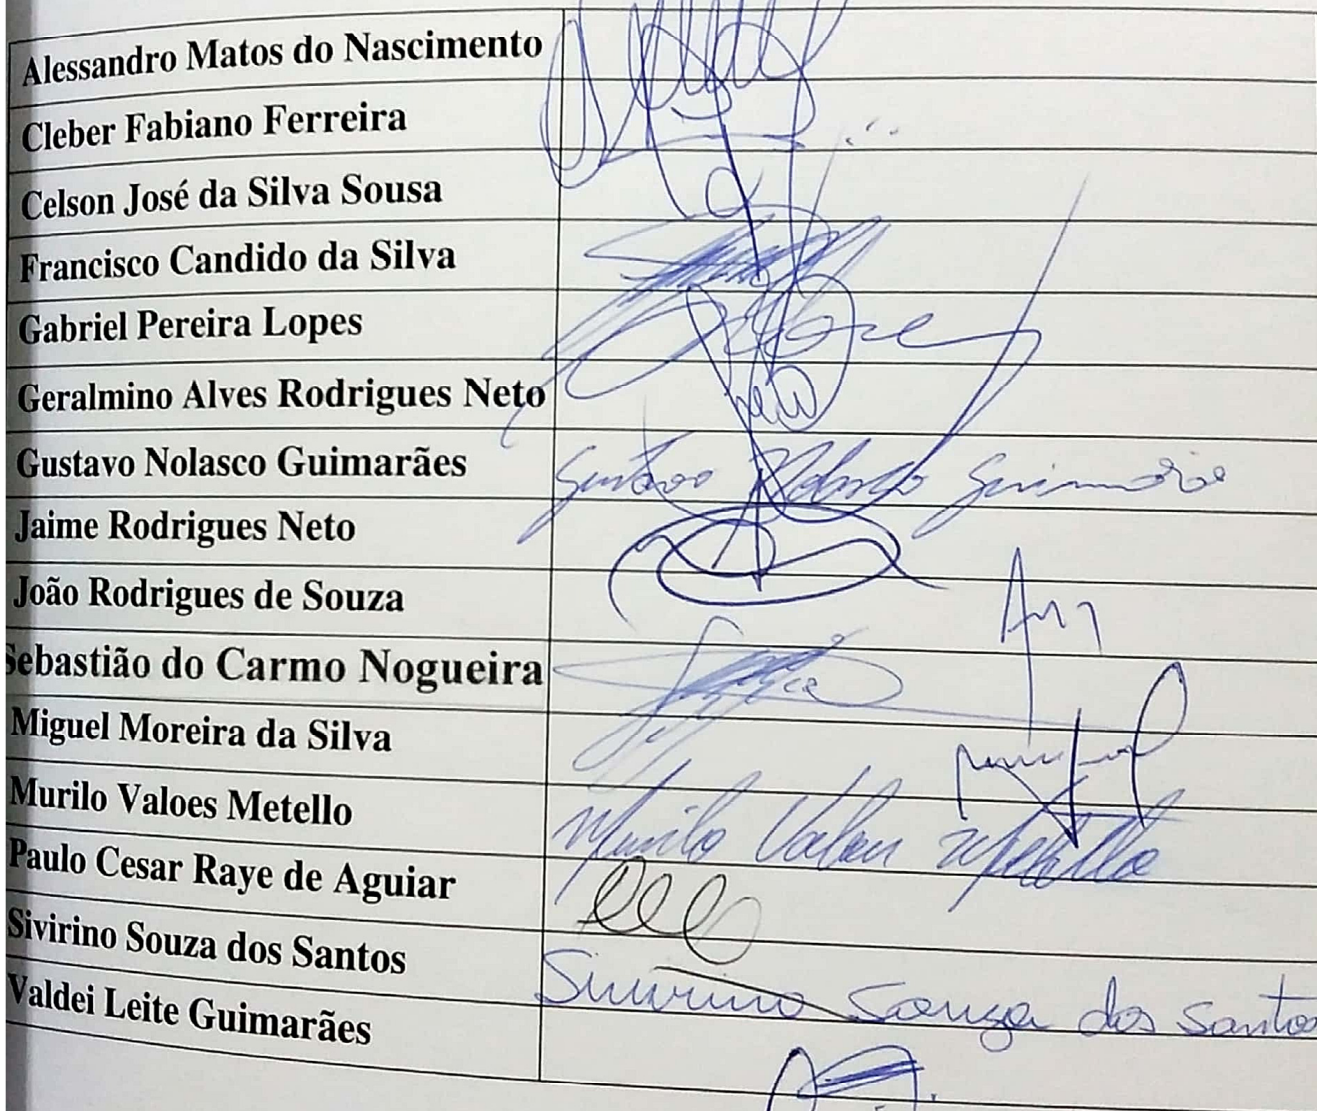 Alessandro Matos do Nascimento
Cleber Fabiano Ferreira
Celson José da Silva Sousa
Francisco Candido da Silva
Gabriel Pereira Lopes
Geralmino Alves Rodrigues Neto
Gustavo Nolasco Guimarães Gustavo Nolasco Guimarães
Jaime Rodrigues Neto
João Rodrigues de Souza
Sebastião do Carmo Nogueira
Miguel Moreira da Silva
Murilo Valoes Metello Murilo Valoes Metello
Paulo Cesar Raye de Aguiar
Sivirino Souza dos Santos Sivirino Souza dos Santos
Valdei Leite Guimarães